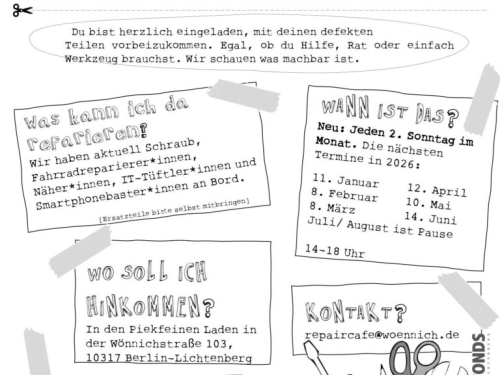 Du bist herzlich eingeladen, mit deinen defekten
Teilen vorbeizukommen. Egal, ob du Hilfe, Rat oder einfach
Werkzeug brauchst. Wir schauen was machbar ist.
Was kann ich da
reparieren?
Wir haben aktuell Schraub,
Fahrradreparierer*innen,
Näher*innen, IT-Tüftler*innen und
Smartphonebaster*innen an Bord.
[Ersatzteile bitte selbst mitbringen]
WANN IST DAS?
Neu: Jeden 2. Sonntag im
Monat. Die nächsten
Termine in 2026:
11. Januar
8. Februar
8. März
12. April
10. Mai
14. Juni
Juli/ August ist Pause
14-18 Uhr
WO SOLL ICH
HINKOMMEN?
In den Piekfeinen Laden in
der Wönnichstraße 103,
10317 Berlin-Lichtenberg
KONTAKT?
repaircafe@woennich.de
ONDS